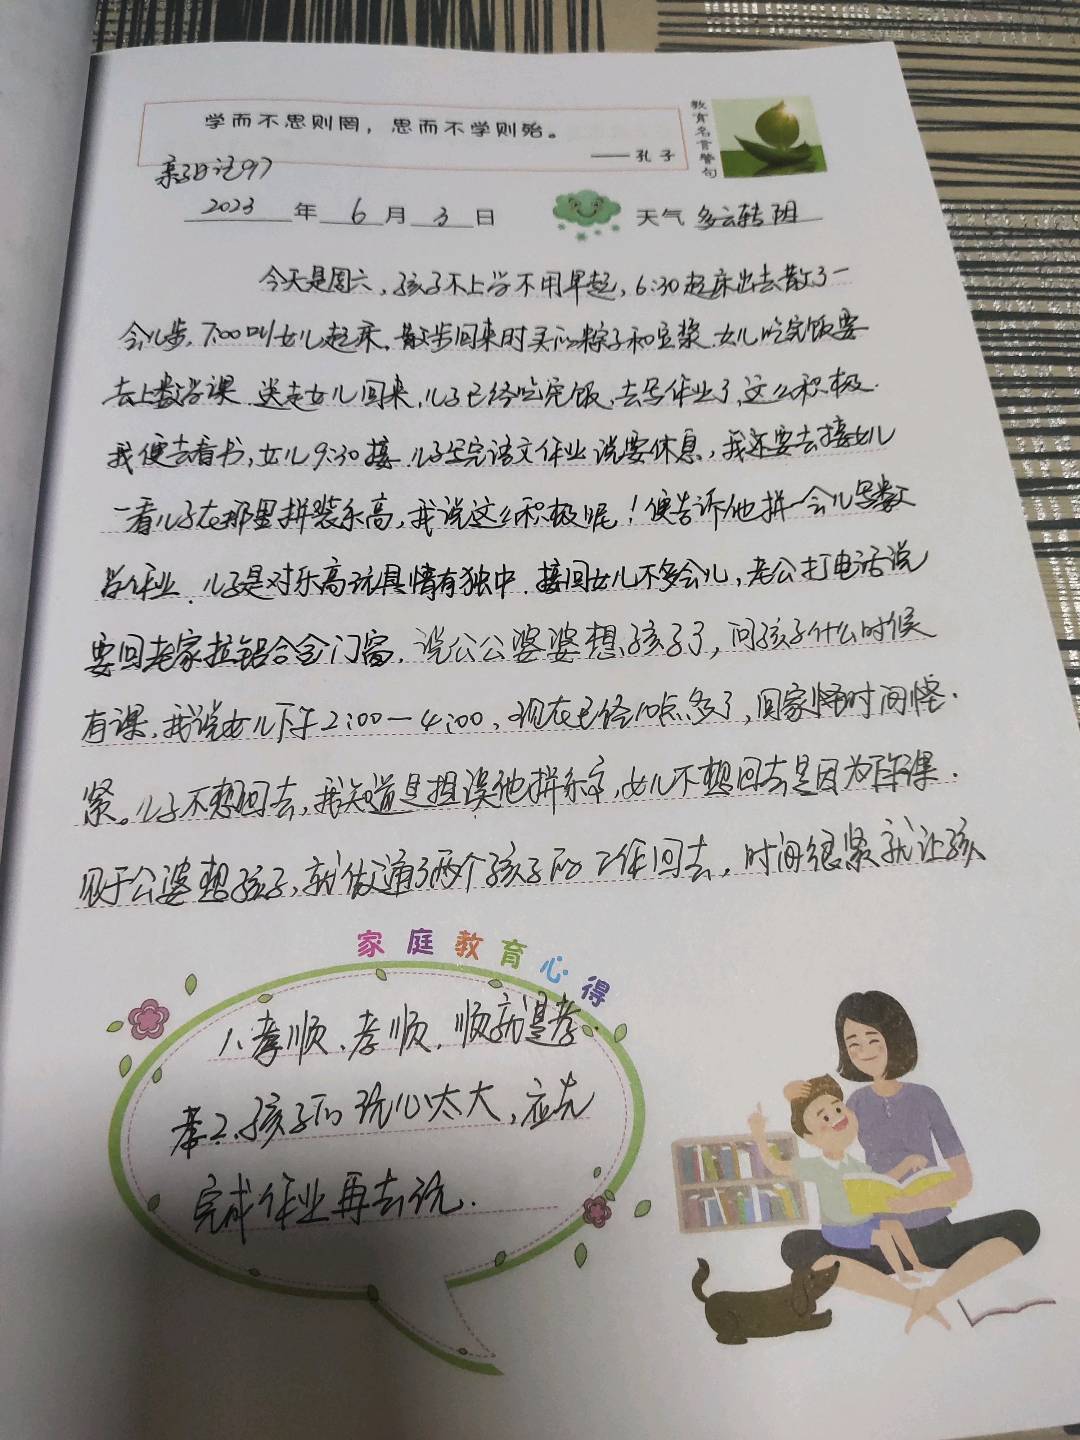 学而不思则罔，思而不学则殆。
——孔子
教育名言警句
亲子日记97
2023年6月3日 天气 多云转阴
今天是周六，孩子不上学不用早起，6:30起床出去散了一
会儿步，7:00叫女儿起床，散步回来时买的粽子和豆浆，女儿吃完饭要
去上数学课，送走女儿回来，儿子已经吃完饭，去写作业了，这么积极.
我便去看书，女儿9:30接，儿子写完语文作业说要休息，我还要去接女儿
一看儿子在那里拼装乐高，我说这么积极呢！便告诉他拼一会儿写数
学作业，儿子是对乐高玩具情有独中，接回女儿不多会儿，老公打电话说
要回老家拉铝合金门窗，说公公婆婆想孩子了，问孩子什么时候
有课，我说女儿下午2:00—4:00，现在已经10点多了，回家怪时间怪.
紧。儿子不想回去，我知道是担误他拼乐高，女儿不想回去是因为有课.
见于公婆想孩子，就做通了两个孩子的工作回去，时间很紧就让孩
家庭教育心得
1、孝顺、孝顺，顺就是孝.
孝2、孩子的玩心太大，应先
完成作业再去玩.